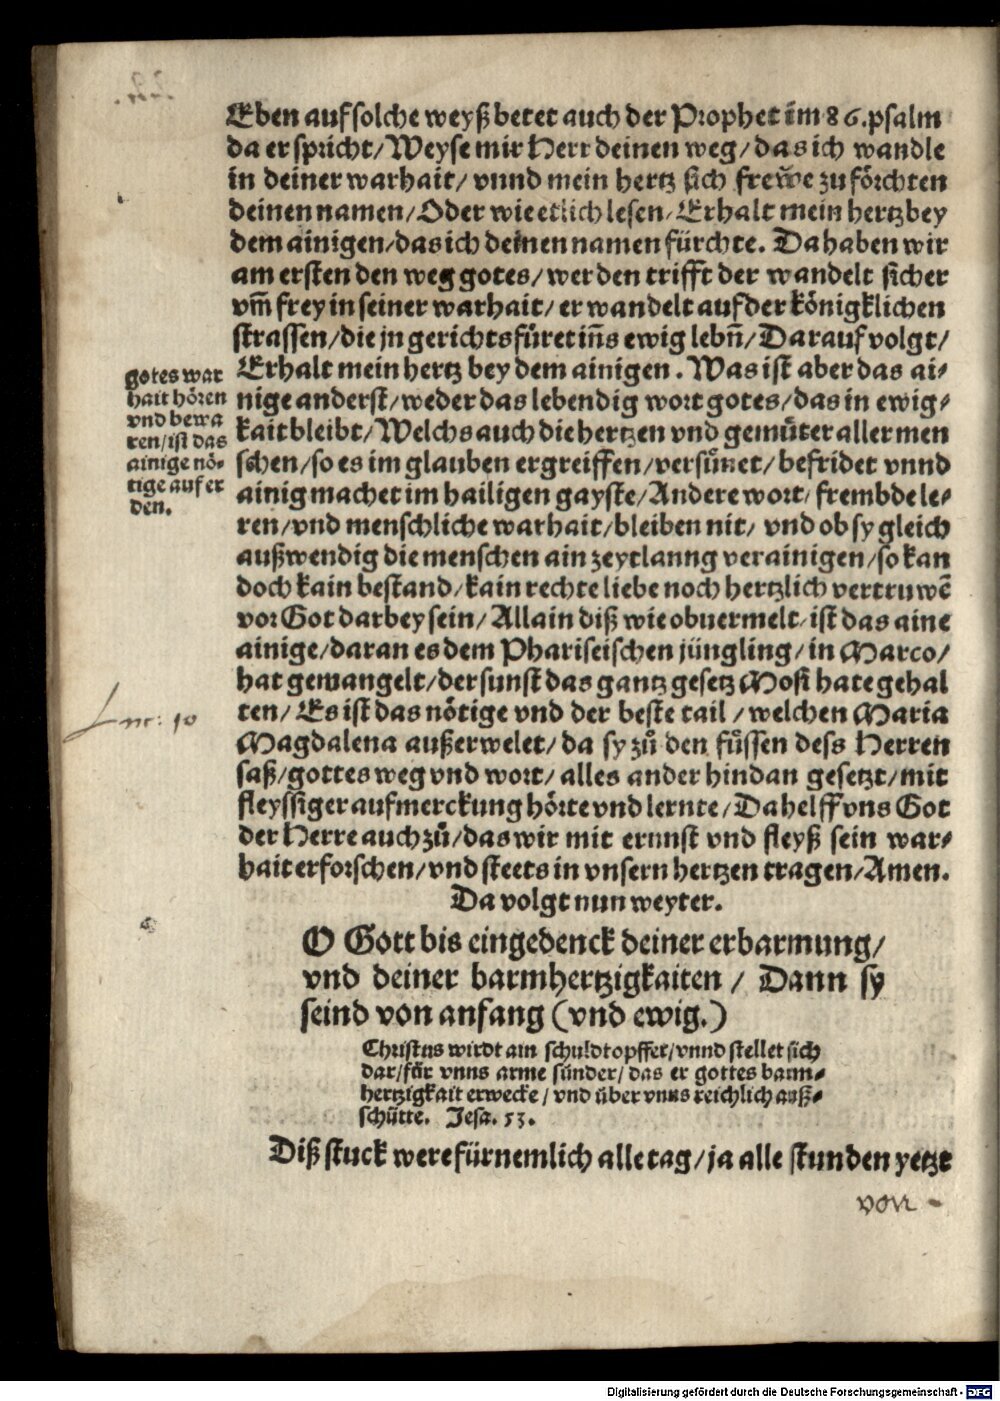 Eben auf solche weyß betet auch der Prophet im 86. psalm
da er spricht/ Weyse mir Herr deinen weg/ das ich wandle
in deiner warhait/ vnnd mein hertz sich frewe zu förchten
deinen namen/ Oder wie etlich lesen/ Erhalt mein hertz bey
dem ainigen/ das ich deinen namen fürchte. Da haben wir
am ersten den weg gotes/ wer den trifft der wandelt sicher
vm̃ frey in seiner warhait/ er wandelt auf der königklichen
strassen/ die jn gerichts füret iñs ewig lebñ/ Darauf volgt/
Erhalt mein hertz bey dem ainigen. Was ist aber das ai⸗
nige anderst/ weder das lebendig wort gotes/ das in ewig⸗
kait bleibt/ Welchs auch die hertzen vnd gemuͤter aller men
schen/ so es im glauben ergreiffen/ versuͤnet/ befridet vnnd
ainig machet im hailigen gayste/ Andere wort/ frembde le⸗
ren/ vnd menschliche warhait/ bleiben nit/ vnd ob sy gleich
außwendig die menschen ain zeytlanng verainigen/ so kan
doch kain bestand/ kain rechte liebe noch hertzlich vertruwẽ
vor Got darbey sein/ Allain diß wie obuermelt/ ist das aine
ainige/ daran es dem Phariseischen jüngling/ in Marco/
hat gemangelt/ der sunst das gantz gesetz Mosi hate gehal
ten/ Es ist das nötige vnd der beste tail/ welchen Maria
Magdalena außerwelet/ da sy zuͦ den fuͤssen dess Herren
saß/ gottes weg vnd wort/ alles ander hindan gesetzt/ mit
fleyssiger aufmerckung hörte vnd lernte/ Da helff vns Got
der Herre auch zuͦ/ das wir mit ernnst vnd fleyß sein war⸗
hait erforschen/ vnd steets in vnsern hertzen tragen/ Amen.
gotes war
hait hören
vnd bewa
ren/ ist das
ainige nö⸗
tige auf er
den.
Luc: 10
Da volgt nun weyter.
O Gott bis eingedenck deiner erbarmung/
vnd deiner barmhertzigkaiten/ Dann sy
seind von anfang (vnd ewig.)
Christus wirdt ain schuldtopffer/ vnnd stellet sich
dar/ für vnns arme sünder/ das er gottes barm⸗
hertzigkait erwecke/ vnd über vnns reichlich auß⸗
schütte. Jesa. 53.
Diß stuck were fürnemlich alle tag/ ja alle stunden yetzt
von
Digitalisierung gefördert durch die Deutsche Forschungsgemeinschaft - DFG